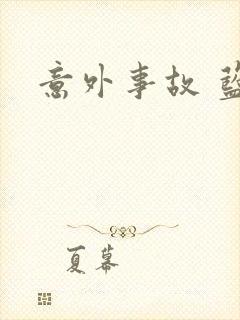 意外事故 藍
夏幕